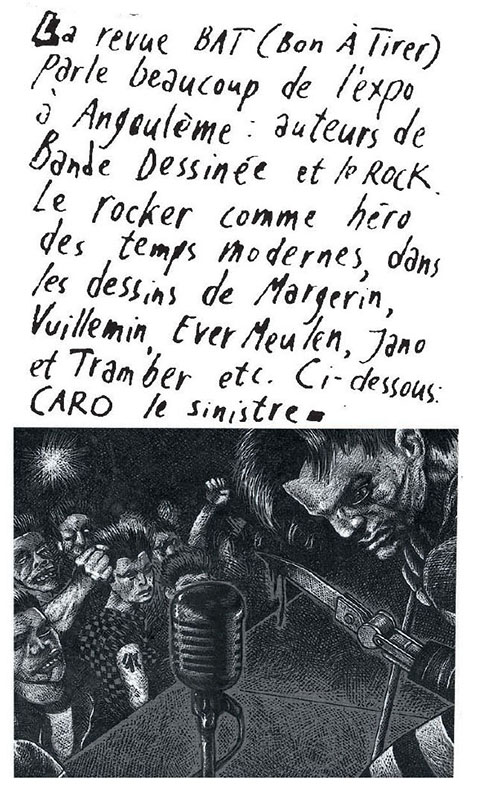 La revue BAT (Bon À Tirer)
Parle beaucoup de l'expo
à Angoulême : auteurs de
Bande Dessinée et le ROCK.
Le rocker comme héro
des temps modernes, dans
les dessins de Margerin,
Vuillemin, Ever Meulen, Jano
et Tramber etc. Ci-dessous:
CARO le sinistre